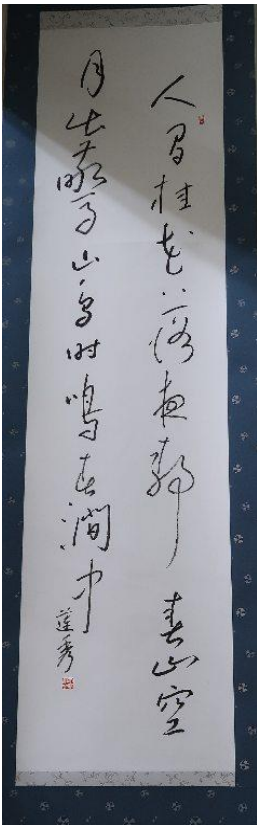 人閒桂花落夜靜春山空
月出驚山鳥時鳴春澗中
蓮秀